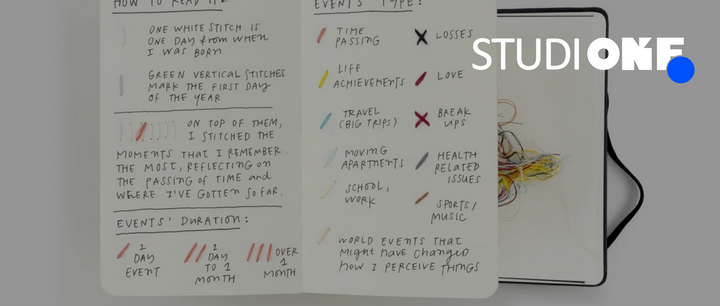 HOW TO READ IT:
ONE WHITE STITCH IS
ONE DAY from WHEN
I WAS BORN
GREEN VERTICAL STITCHES
MARK THE FIRST DAY
OF THE YEAR
ON TOP OF THEM,
I STITCHED THE
MOMENTS THAT I REMEMBER
THE MOST, REFLECTING ON
THE PASSING OF TIME AND
WHERE I'VE GOTTEN SO FAR.
EVENTS' DURATION:
1
DAY
EVENT
1
DAY
TO 1
MONTH
OVER
1
MONTH
EVENTS TYPE:
TIME
PASSING
LIFE
ACHIEVEMENTS
TRAVEL
(BIG TRIPS)
MOVING
APARTMENTS
SCHOOL,
WORK
WORLD EVENTS THAT
MIGHT HAVE CHANGED
HOW I PERCEIVE THINGS
LOSSES
LOVE
BREAK
UPS
HEALTH
RELATED
ISSUES
SPORTS/
MUSIC
STUDIONE